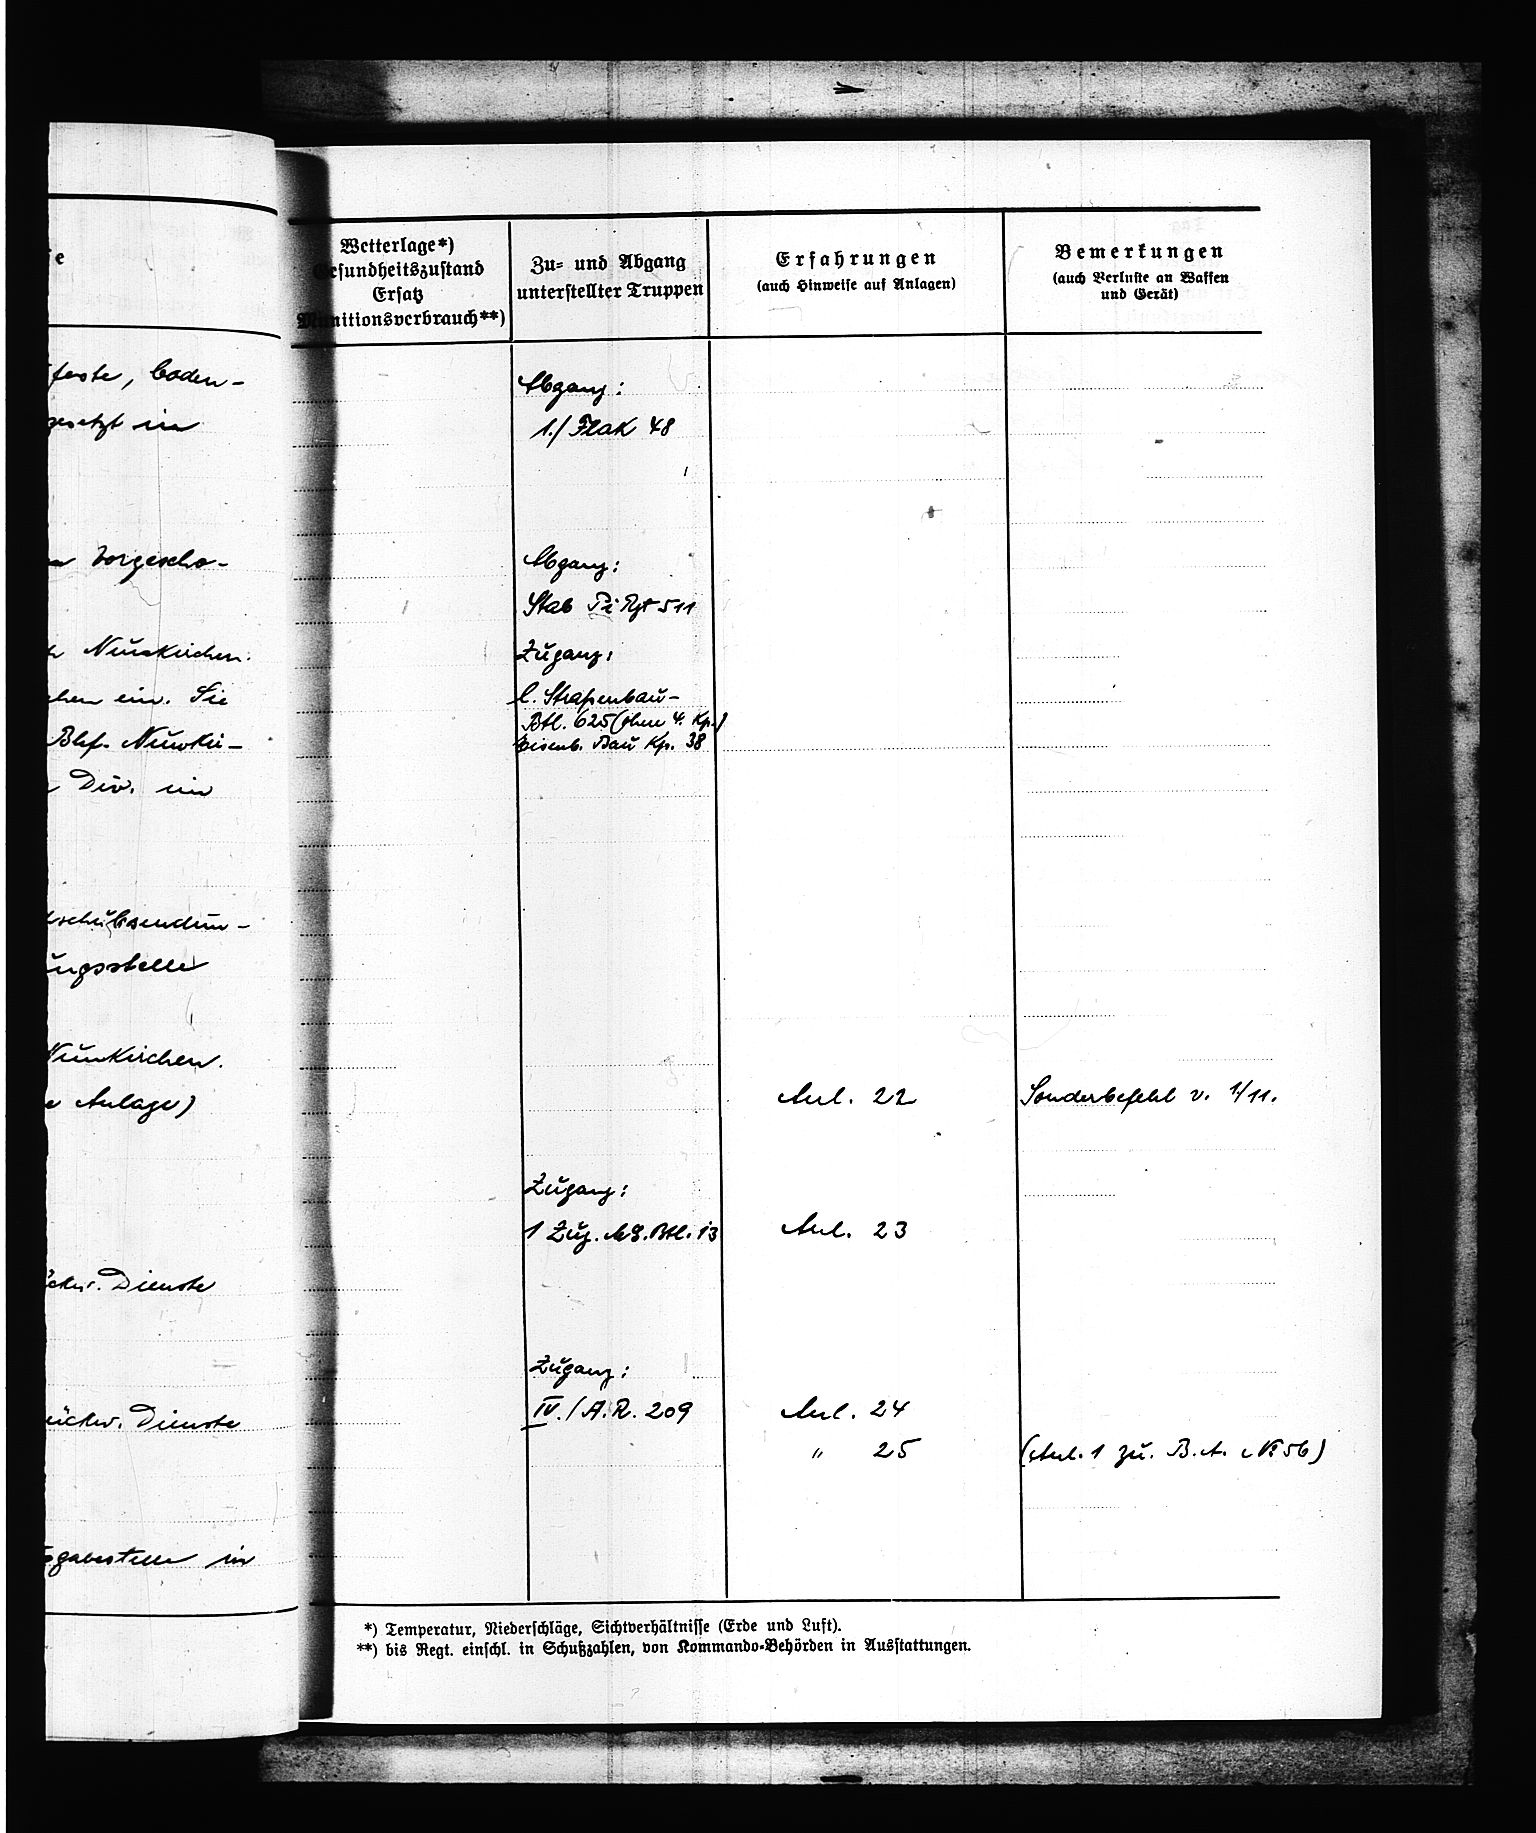 e
feste, boden-
gesetzt in
vorgescho-
Neunkirchen.
chen ein. Sie
Bhf. Neunki-
Div. im
schubsendun-
ungsstelle
Neunkirchen.
e Anlage)
ückw. Dienste
rückw. Dienste
sgabestelle in
Wetterlage*)
Gesundheitszustand
Ersatz
Munitionsverbrauch**)
Zu- und Abgang
unterstellter Truppen
Erfahrungen
(auch Hinweise auf Anlagen)
Bemerkungen
(auch Verluste an Waffen
und Gerät)
Abgang:
1./Flak 48
Abgang:
Stab Pi Rgt 511
Zugang:
l. Straßenbau-
Btl. 625 (ohne 4. Kp.)
Eisenb. Bau Kp. 38
Anl. 22 Sonderbefehl v. 1/11.
Zugang:
1 Zug. M.G. Btl. 13 Anl. 23
Zugang:
IV./A.R. 209 Anl. 24
" 25 (Anl. 1 zu. B.A. № 56)
*) Temperatur, Niederschläge, Sichtverhältnisse (Erde und Luft).
**) bis Regt. einschl. in Schußzahlen, von Kommando-Behörden in Ausstattungen.